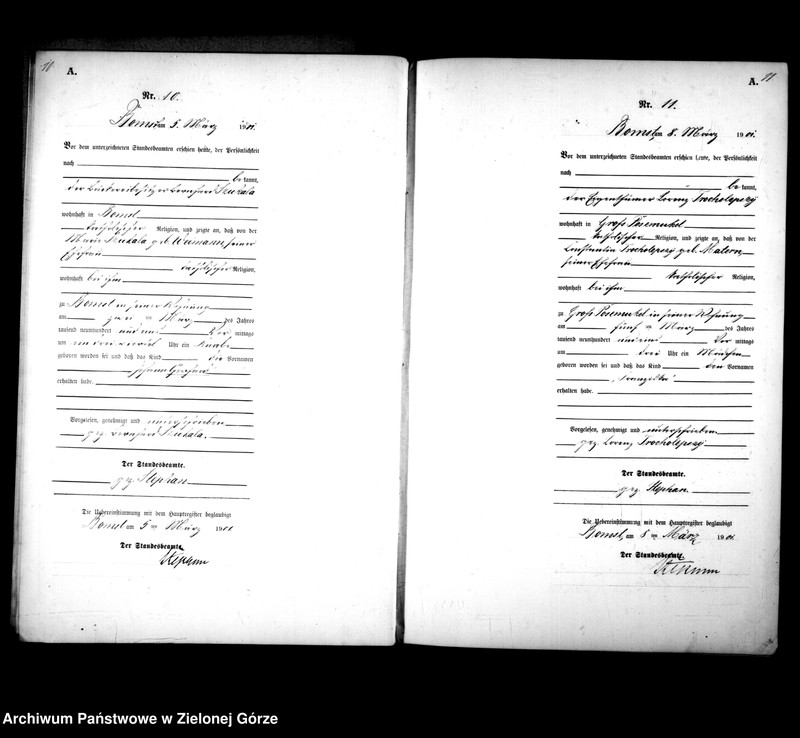 10
A.
Nr. 10.
Bomst am 5. März 1901.
Vor dem unterzeichneten Standesbeamten erschien heute, der Persönlichkeit
nach
bekannt,
der
wohnhaft in Bomst
katholischer Religion, und zeigte an, daß von der
geb. seiner
Ehefrau
katholischer Religion,
wohnhaft bei ihm
zu Bomst in seiner Wohnung
am ten März des Jahres
tausend neunhundert und eins Vor mittags
um Uhr ein Knabe
geboren worden sei und daß das Kind die Vornamen
erhalten habe.
Vorgelesen, genehmigt und unterschrieben
gez.
Der Standesbeamte.
gez. Stephan
Die Uebereinstimmung mit dem Hauptregister beglaubigt
Bomst am 5 ten März 1901
Der Standesbeamte
Stephan
11
A.
Nr. 11.
Bomst am 8. März 1901.
Vor dem unterzeichneten Standesbeamten erschien heute, der Persönlichkeit
nach
bekannt,
der Eigenthümer Lorenz
wohnhaft in Groß Posemukel
katholischer Religion, und zeigte an, daß von der
geb. Matern
seiner Ehefrau
katholischer Religion,
wohnhaft bei ihm
zu Groß Posemukel in seiner Wohnung
am fünf ten März des Jahres
tausend neunhundert und eins Vor mittags
um drei Uhr ein Mädchen
geboren worden sei und daß das Kind den Vornamen
erhalten habe.
Vorgelesen, genehmigt und unterschrieben
gez. Lorenz
Der Standesbeamte.
gez. Stephan.
Die Uebereinstimmung mit dem Hauptregister beglaubigt
Bomst, am 8 ten März 1901.
Der Standesbeamte
Stephan
Archiwum Państwowe w Zielonej Górze